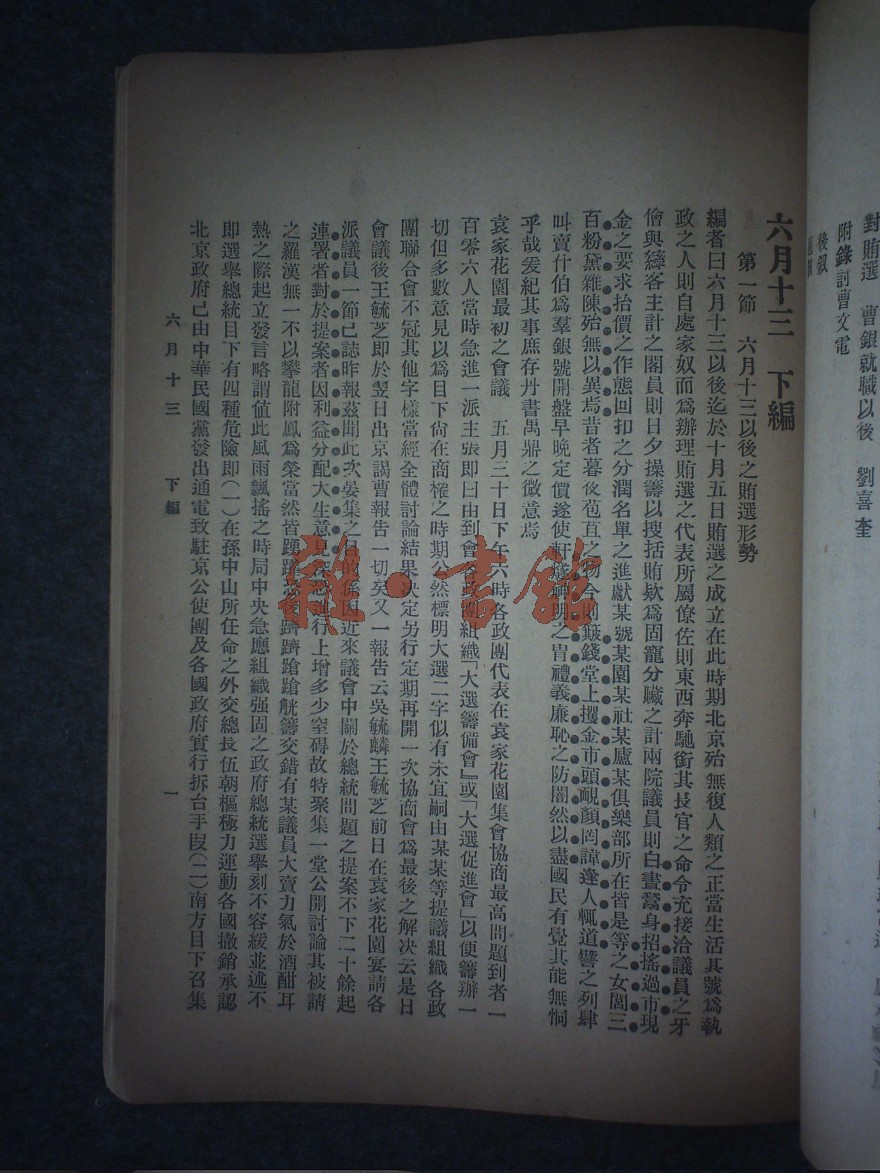 對賄選　曹銀就職以後　劉喜奎
附錄討曹文電
後叙
六月十三　下編
第一節　六月十三以後之賄選形勢
編者曰六月十三以後迄於十月五日賄選之成立在此時期北京殆無復人類之正當生活其號爲執
政之人則自處家奴而爲辦理賄選之代表所屬僚佐則東西奔馳銜其長官之命令充接洽議員之牙
儈與縴客主計之閣員則日夕操籌以搜括賄欵爲固寵分贓之計兩院議員則白晝鬻身招搖過市現
金之要求抬價之作態回扣之分潤名單之進獻某號某園某社某廬某俱樂部所在皆是等之女閭三
百粉黛雜陳殆無以異焉昔者暮夜苞苴之物今則簸錢堂上攫金市頭靦顏罔諱逢人輒道譬之列肆
叫賣什伯爲羣銀號開盤早晚定價遂使軒轅神明之胄禮義廉恥之防闇然以盡國民有覺其能無恫
乎哉爰紀其事庶存丹書禹鼎之微意焉
袁家花園最初之會議　五月三十日下午六時各政團代表在袁家花園集會協商最高問題到者一
百零六人當時急進一派主張即日由到會各政團組織「大選籌備會』或「大選促進會」以便籌辦一
切但多數意見以爲目下尙在商榷之時期公然標明大選二字似有未宜嗣由某某等提議組織各政
團聯合會不冠其他字樣當經全體討論結果決定另行定期再開一次協商會爲最後之解決云是日
會議後王毓芝即於翌日出京謁曹報告一切矣又一報告云吳毓麟王毓芝前日在袁家花園宴請各
派議員一節已誌昨報茲聞此次宴集之目的係因近來議會中關於總統問題之提案不下二十餘起
連署者對於提案者因利益分配大生意見進行上增多少窒碍故特聚集一堂公開討論其被請
之羅漢無一不以攀龍附鳳爲榮當然皆踴躍恐後躋躋蹌蹌觥籌交錯有某議員大賣力氣於酒酣耳
熱之際起立發言略謂值此風雨飄搖之時局中央急應組織强固之政府總統選舉刻不容緩並述不
即選舉總統目下有四種危險即(一)在孫中山所任命之外交總長伍朝樞極力運動各國撤銷承認
北京政府已由中華民國黨發出通電致駐京公使團及各國政府實行拆台手段(二)南方目下召集
六月十三　下編　一
雜·書館